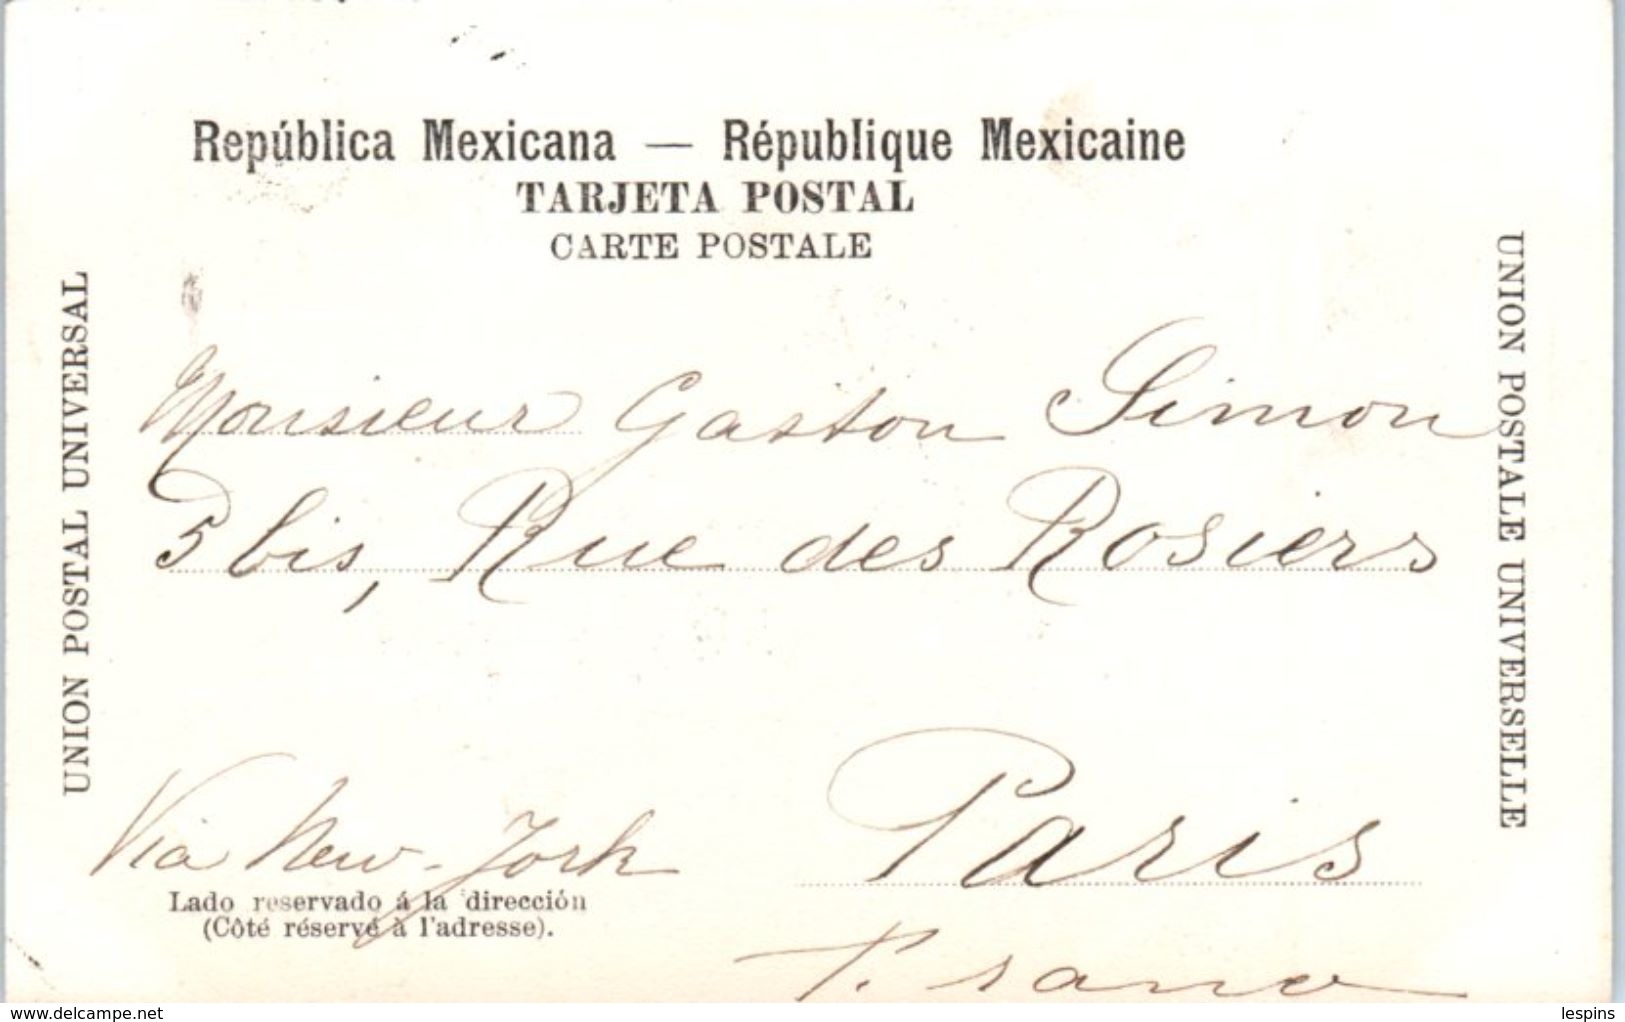 República Mexicana — République Mexicaine
TARJETA POSTAL
CARTE POSTALE
UNION POSTAL UNIVERSAL
UNION POSTALE UNIVERSELLE
Monsieur Gaston Simon
5 bis, Rue des Rosiers
Paris
Via New-York
Lado reservado á la dirección
(Côté réservé à l'adresse).
delcampe.net
lespins